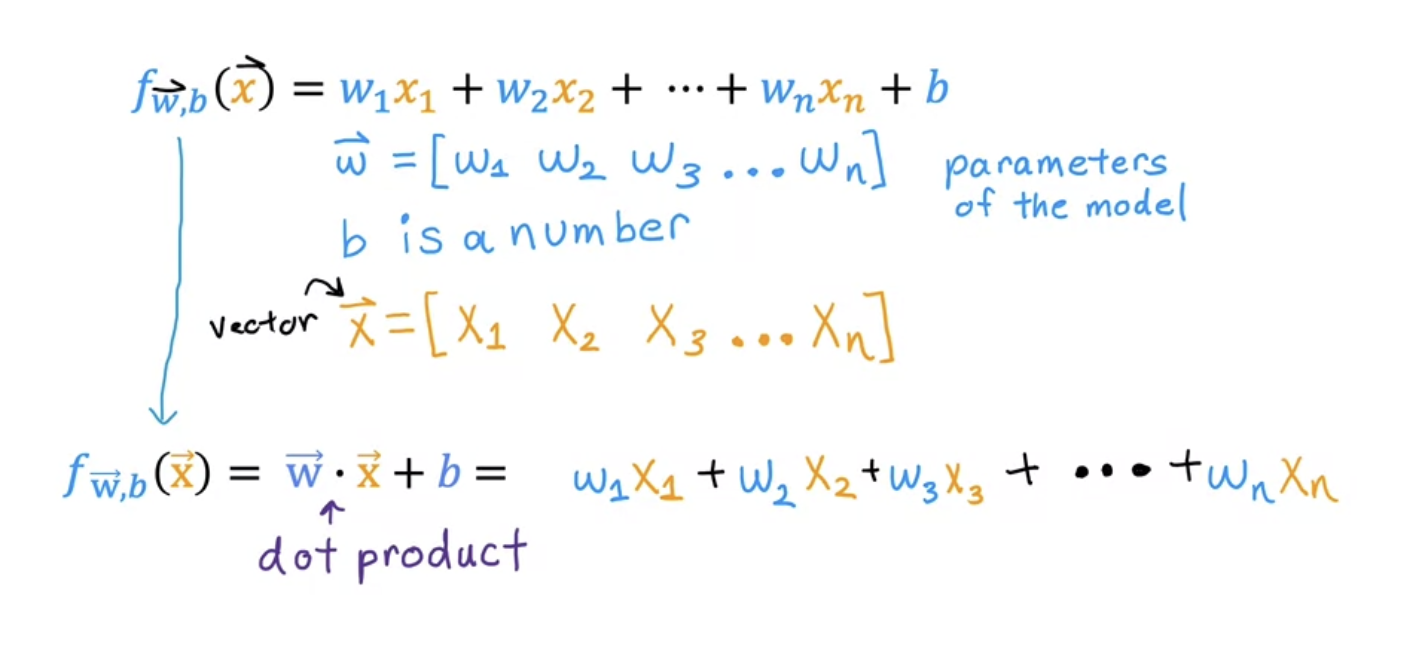 f w⃗,b (x⃗) = w₁x₁ + w₂x₂ + ⋯ + wₙxₙ + b
w⃗ = [w₁ w₂ w₃ ... wₙ] parameters of the model
b is a number
vector x⃗ = [x₁ x₂ x₃ ... xₙ]
f w⃗,b (x⃗) = w⃗ · x⃗ + b = w₁x₁ + w₂x₂ + w₃x₃ + ... + wₙxₙ
dot product